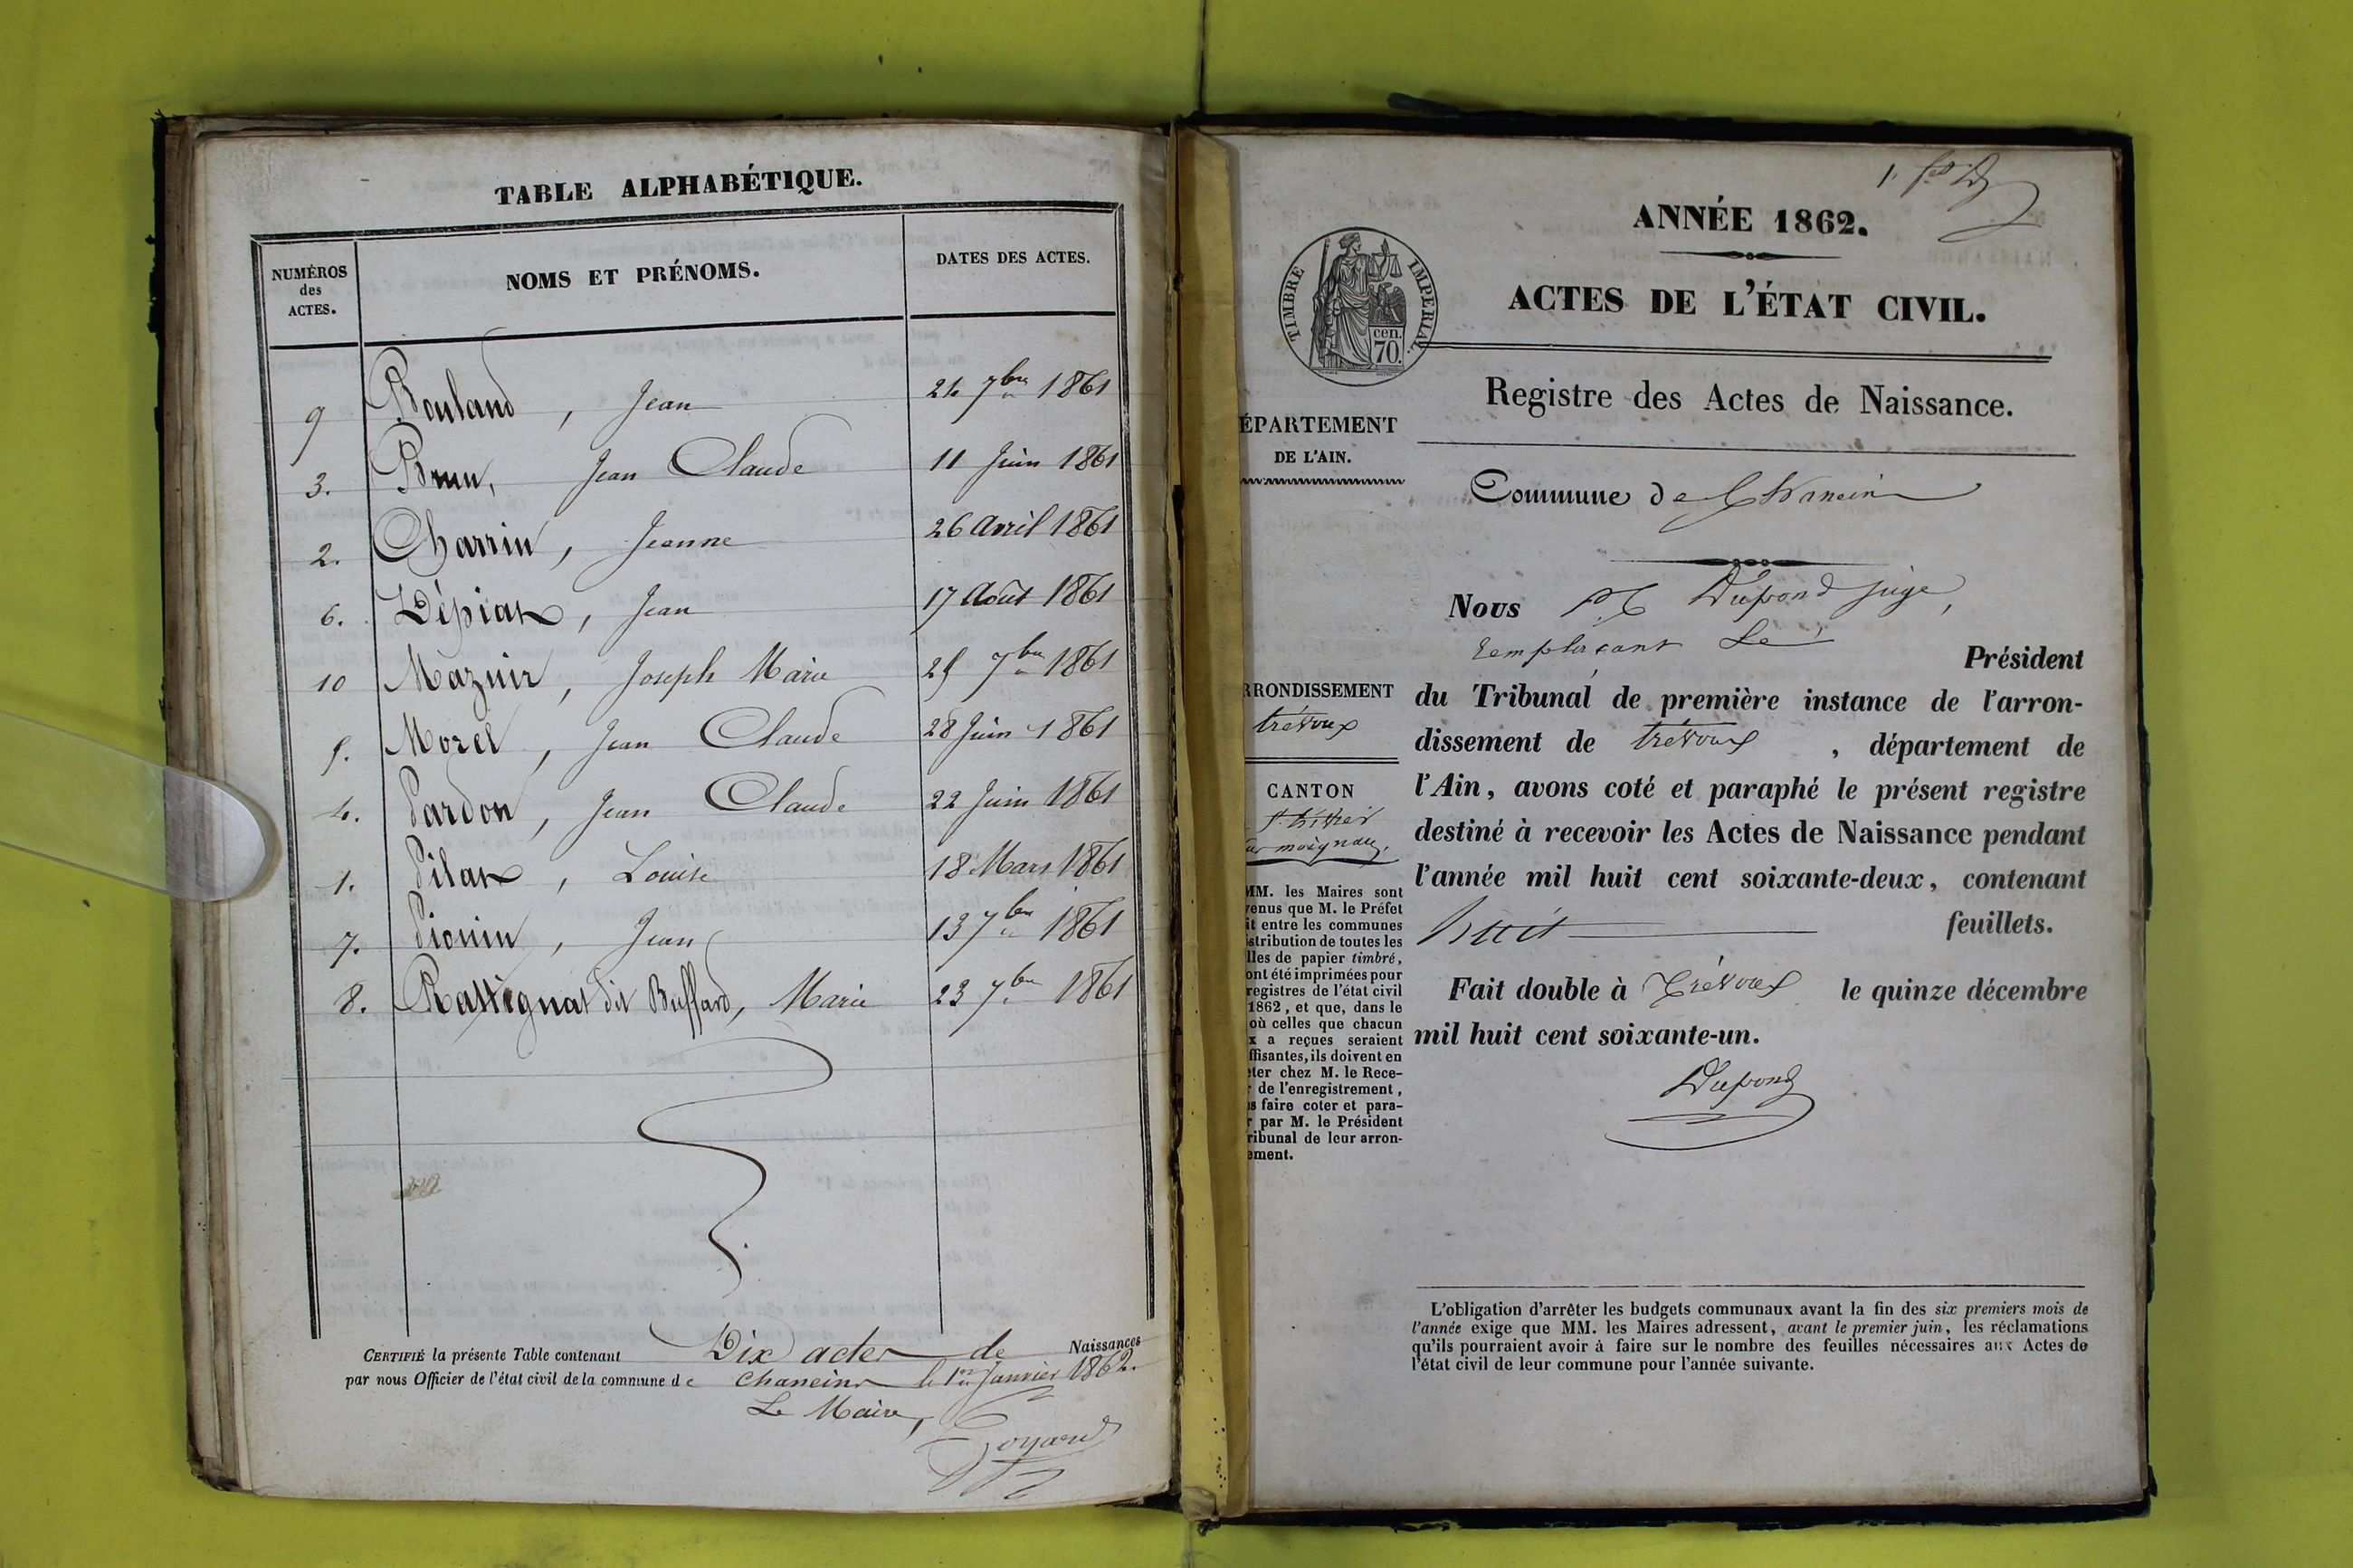 TABLE ALPHABÉTIQUE.
NUMÉROS
des
ACTES.
NOMS ET PRÉNOMS.
DATES DES ACTES.
9 Bouland, Jean 24 7bre 1861
3. Brun, Jean Claude 11 Juin 1861
2. Charrin, Jeanne 26 Avril 1861
6. Dépiat, Jean 17 Août 1861
10 Mazuir, Joseph Marie 25 7bre 1861
5. Morel, Jean Claude 28 Juin 1861
4. Pardon, Jean Claude 22 Juin 1861
1. Pilat, Louise 18 Mars 1861
7. Pionin, Jean 13 7bre 1861
8. Rassignat dit Buffard, Marie 23 7bre 1861
CERTIFIÉ la présente Table contenant Dix actes de Naissances
par nous Officier de l'état civil de la commune de Chaneins le 1er Janvier 1862.
Le Maire,
1.
ANNÉE 1862.
TIMBRE IMPERIAL.
cen.
70.
ACTES DE L'ÉTAT CIVIL.
Registre des Actes de Naissance.
ÉPARTEMENT
DE L'AIN.
Commune de Chaneins
Nous Dupond juge,
remplaçant Le Président
RRONDISSEMENT
trévoux
du Tribunal de première instance de l'arron-
dissement de trévoux, département de
l'Ain, avons coté et paraphé le présent registre
destiné à recevoir les Actes de Naissance pendant
l'année mil huit cent soixante-deux, contenant
huit feuillets.
Fait double à Trévoux le quinze décembre
mil huit cent soixante-un.
Dupond
CANTON
MM. les Maires sont
venus que M. le Préfet
it entre les communes
stribution de toutes les
lles de papier timbré,
ont été imprimées pour
registres de l'état civil
1862, et que, dans le
où celles que chacun
x a reçues seraient
ffisantes, ils doivent en
eter chez M. le Rece-
r de l'enregistrement,
s faire coter et para-
r par M. le Président
ribunal de leur arron-
ement.
L'obligation d'arrêter les budgets communaux avant la fin des six premiers mois de
l'année exige que MM. les Maires adressent, avant le premier juin, les réclamations
qu'ils pourraient avoir à faire sur le nombre des feuilles nécessaires aux Actes de
l'état civil de leur commune pour l'année suivante.